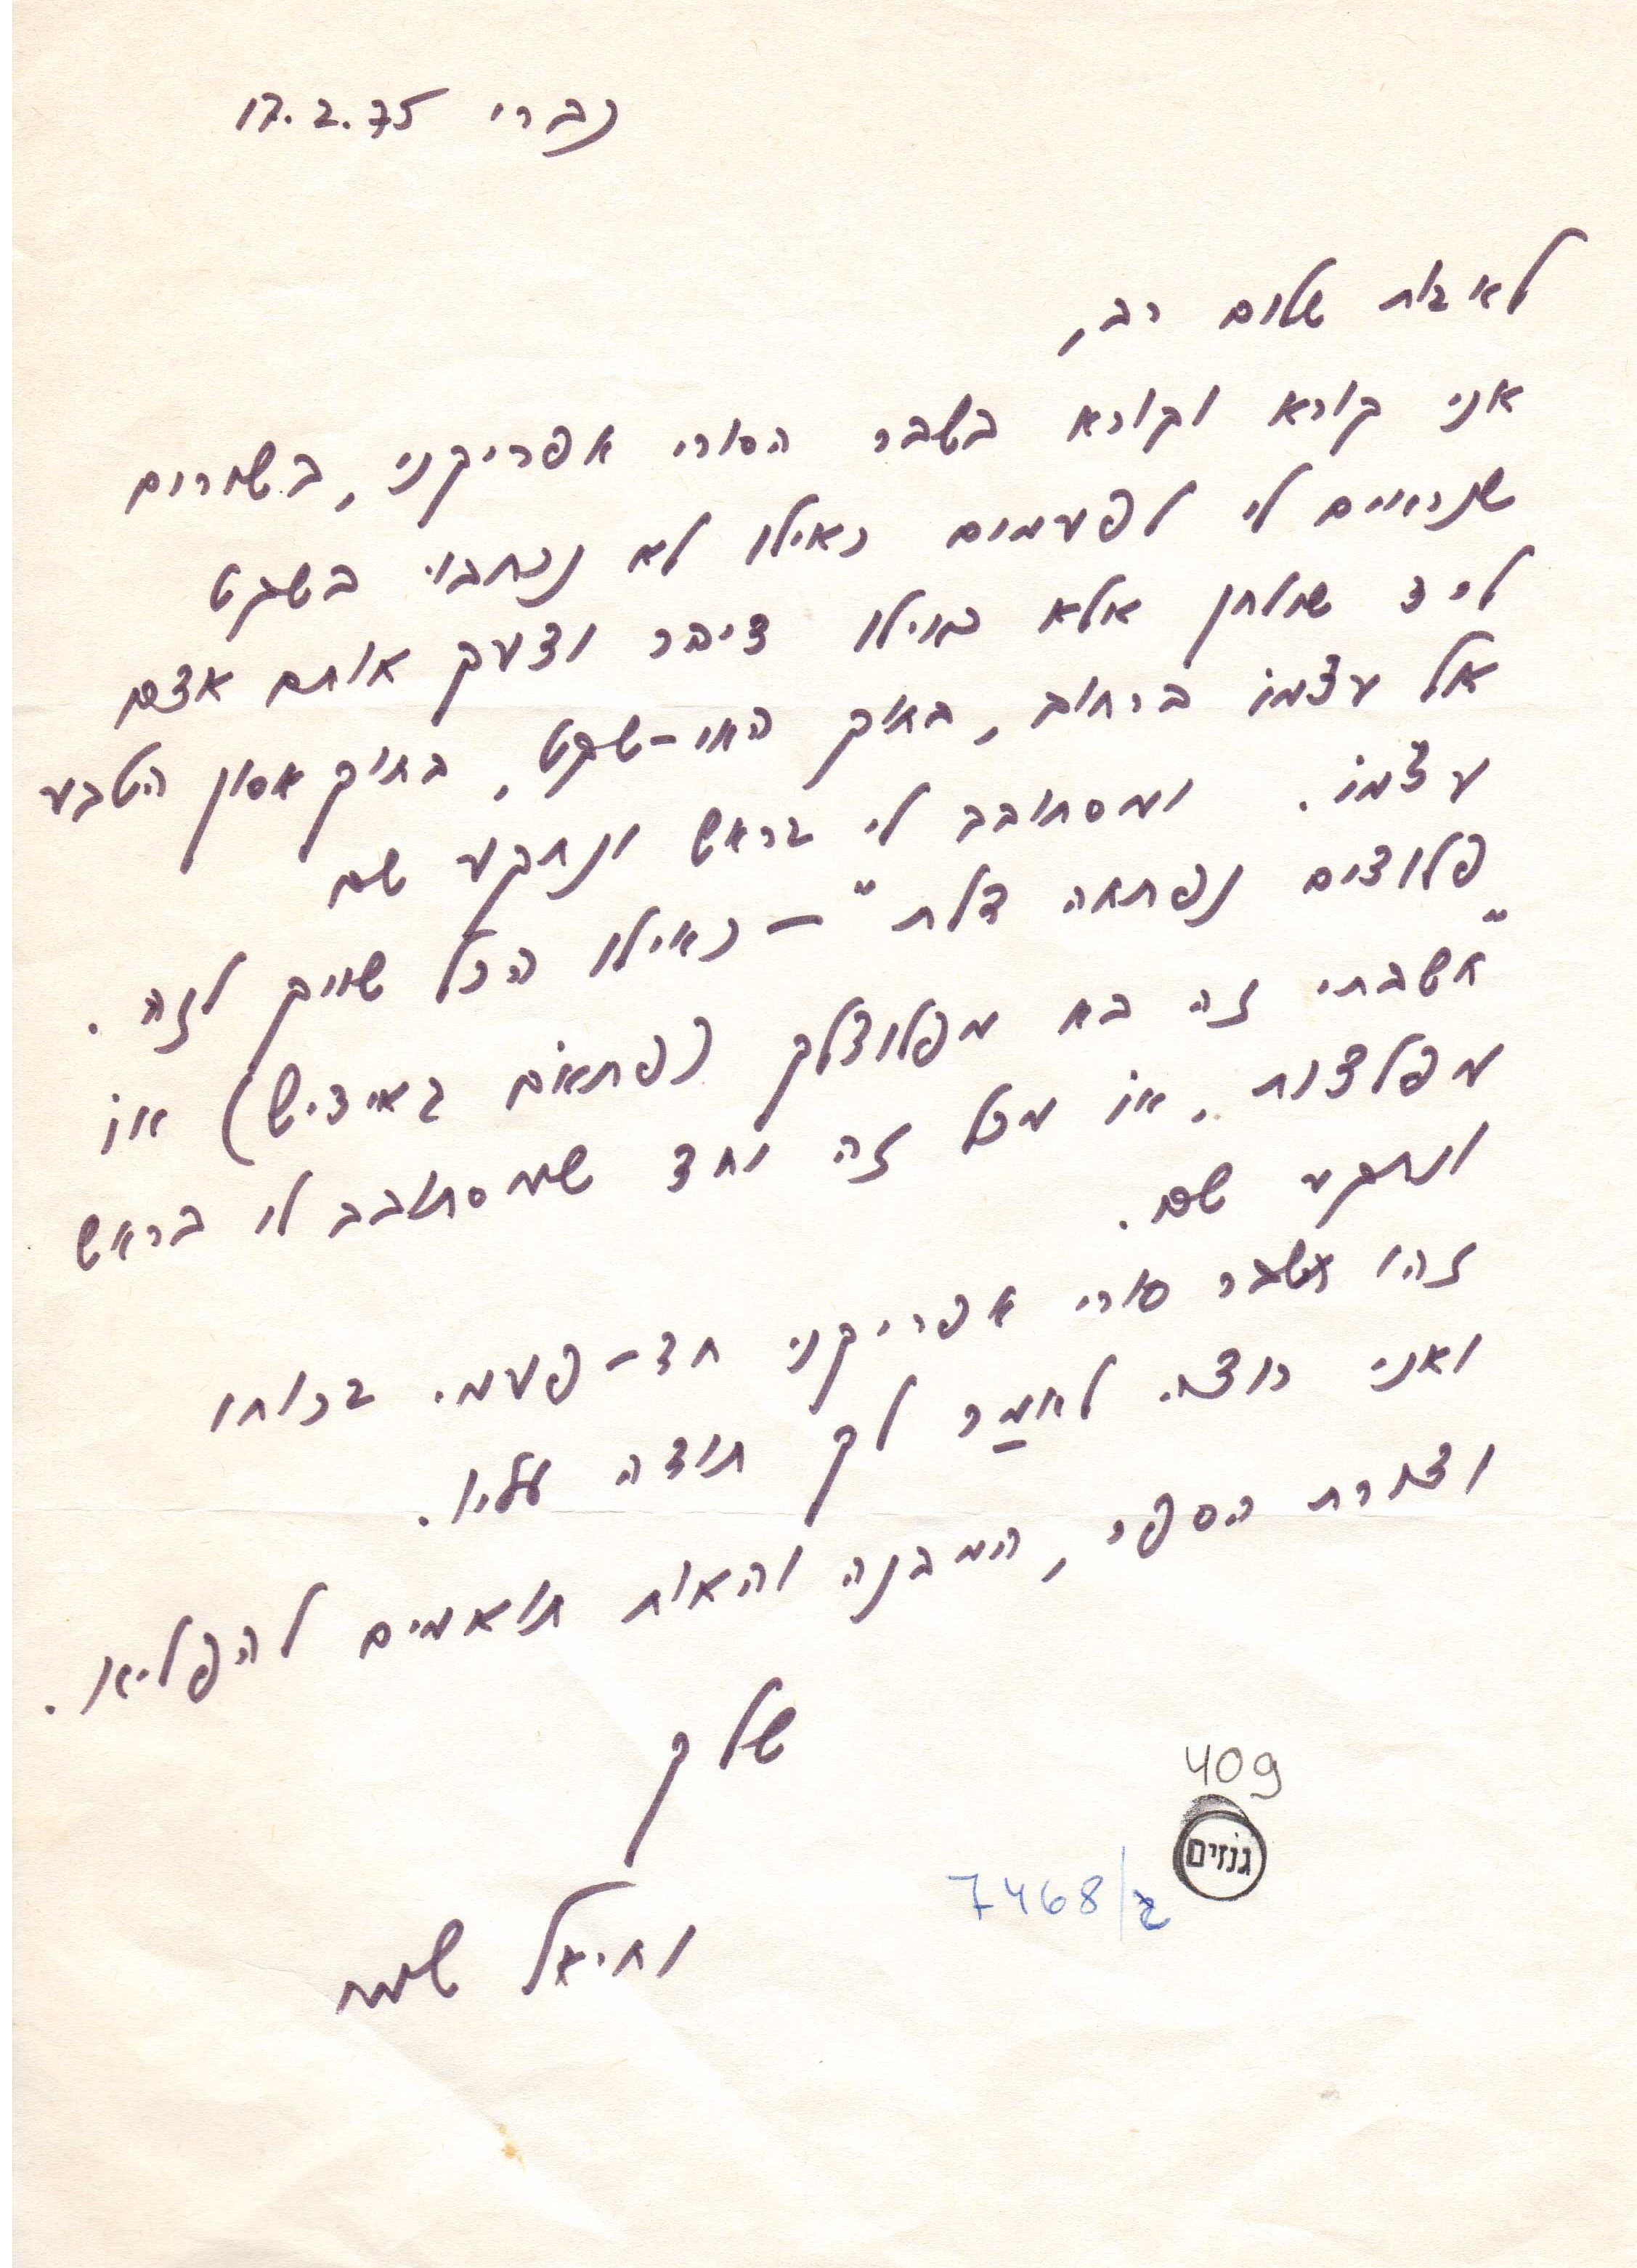 נברי 17.2.75
לאבות שלום רב,
אני קורא וקורא בשבר הסורי אפריקני, בשורום
שנראים לי לפעמים כאילו לא נכתבו בשקט
ליד שולחן אלא כאילו דיבר וצעק אותם אדם
אל עצמו ברחוב, בתוך האי-שקט, בתוך אסון הטבע
עצמו. ומסתובב לי בראש ונתקע שם
"פלוצים נפתחה דלת" – כאילו הכל שייך לזה.
חשבתי זה בא מפלוצלק (פתאום באידיש) או
מפלצות, או מכל זה יחד שמסתובב לו בראש
ונתקע שם.
זהו שבר סורי אפריקני חד-פעמי בכוחו
ואני רוצה לאמר לך תודה עליו.
וצורת הספר, המבנה והאות תואמים להפליא.
שלך
יחיאל
409
גנזים
7468/כ